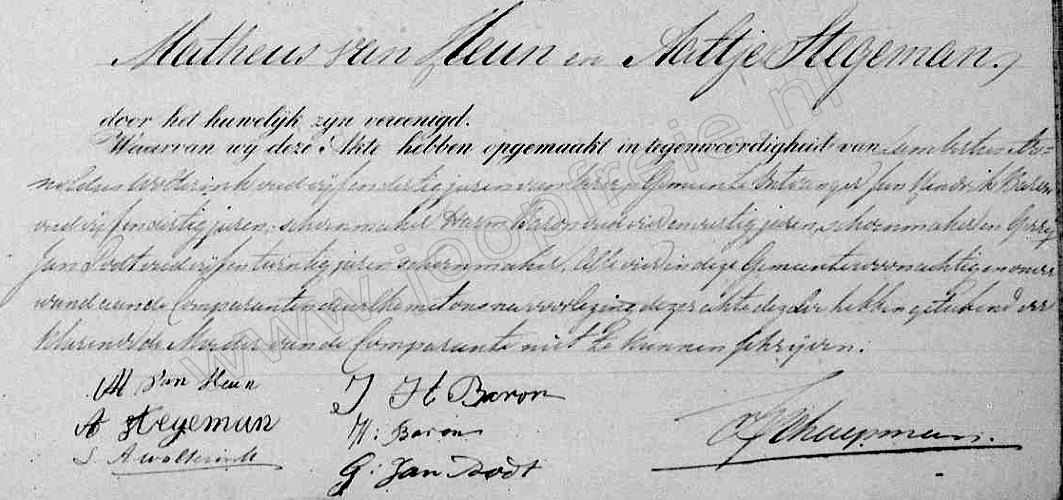 Matheus van Heun en Aaltje Stegeman,
door het huwelijk zyn vereenigd.
Waarvan wy deze Akte hebben opgemaakt in tegenwoordigheid van Lambertus Ar-
noldus Wolterink oud vyf en dertig jaren van beroep Gemeente Ontvanger, Jan Hendrik Baron
oud vyf en dertig jaren, schoenmaker Harm Baron oud en jaren, schoenmaker en Gerrit
Jan Bodt oud vyf en twintig jaren schoenmaker, Alle vier in deze Gemeente woonachtig en onver
wand aan de Comparanten dewelke met ons na voorlezing dezer akte dezelve hebben geteekend ver
klarende de Moeder van de Comparante niet te kunnen schryven.
M van Heun
A Stegeman
L A Wolterink
J H Baron
H: Baron
G: Jan Bodt
www.joopfreie.nl